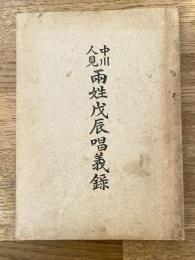 中川
人見
両姓戊辰唱義録